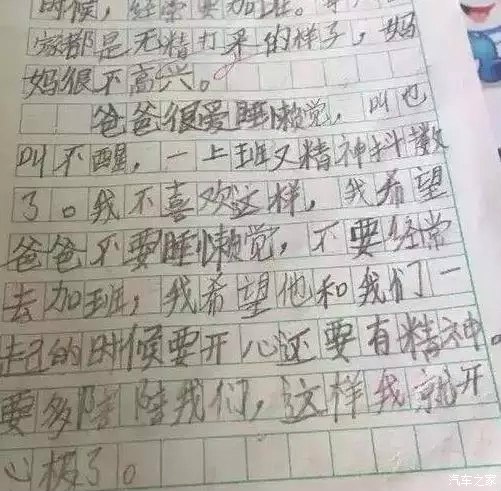 时候，经常要加班。
家都是无精打采的样子，妈
妈很不高兴。
爸爸很爱睡懒觉，叫也
叫不醒，一上班又精神抖擞
了。我不喜欢这样，我希望
爸爸不要睡懒觉，不要经常
去加班，我希望他和我们一
起的时候要开心还要有精神。
要多陪陪我们，这样我就开
心极了。
汽车之家